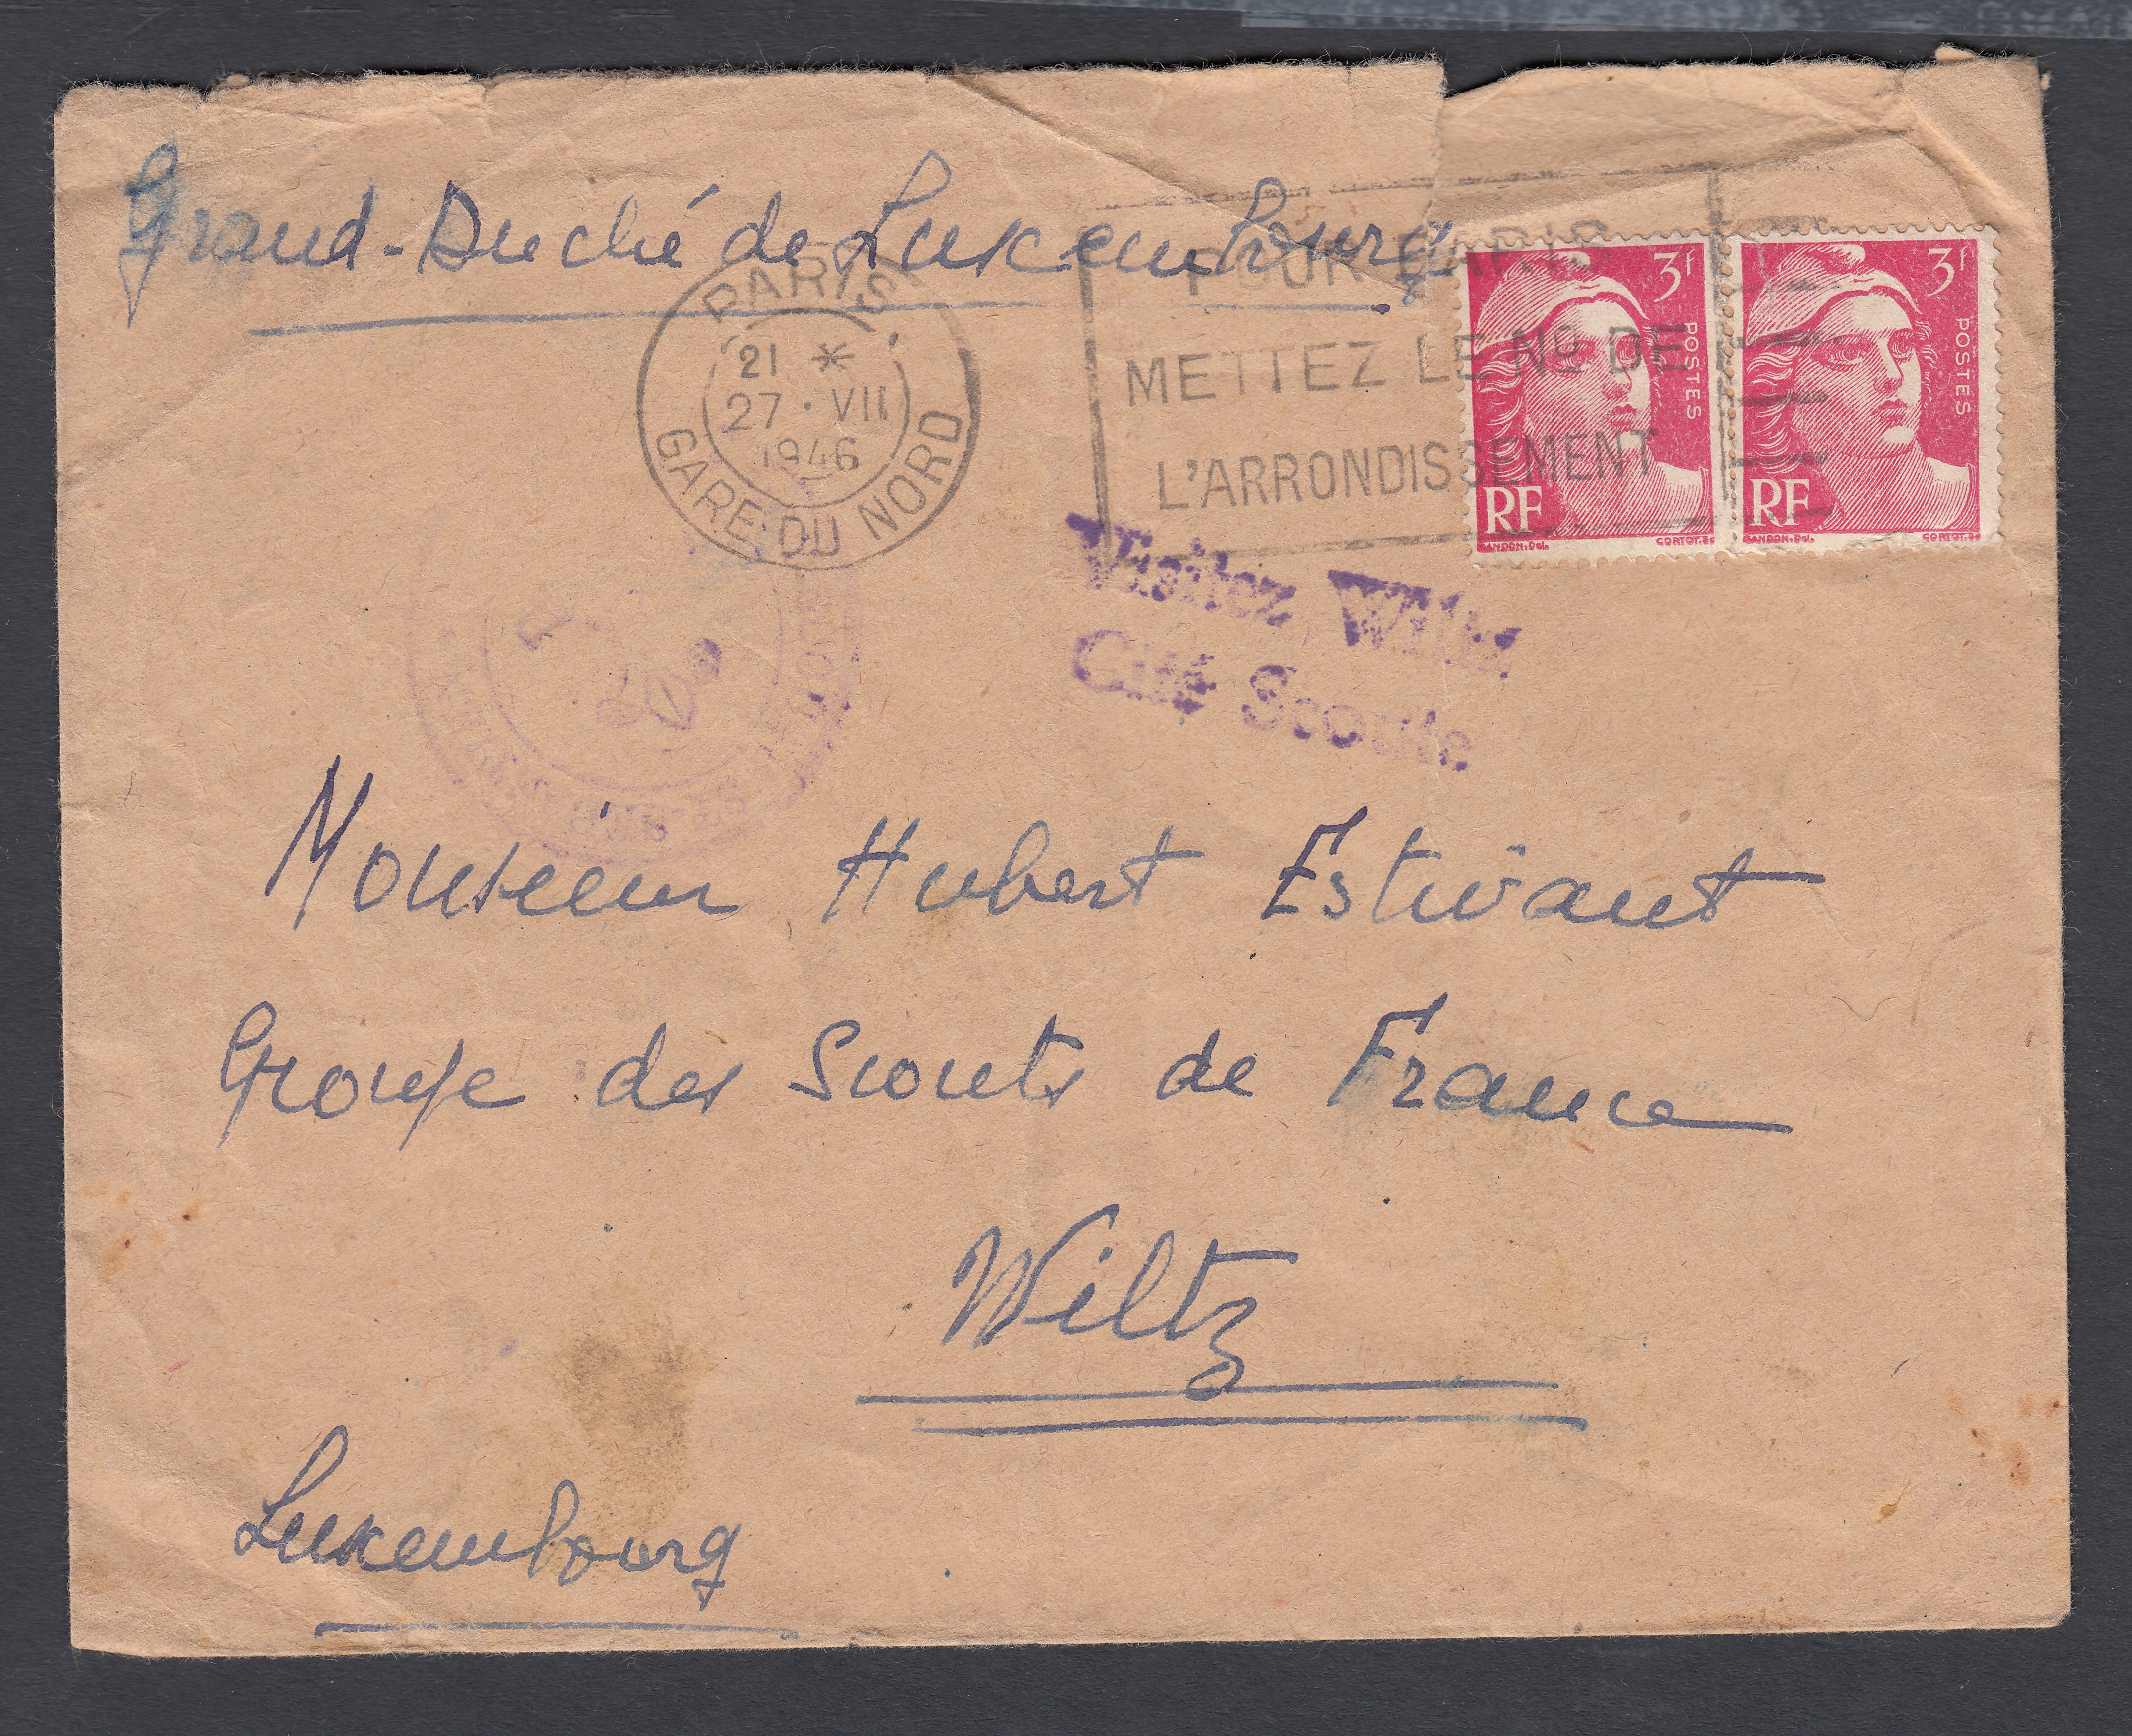 Grand-Duché de Luxembourg
PARIS
21 *
27 · VII
1946
GARE DU NORD
POUR PARIS
METTEZ LE Nº DE
L'ARRONDISSEMENT
3F
POSTES
RF
GANDON, Del.
CORTOT. Sc
3F
POSTES
RF
GANDON, Del.
CORTOT. Sc
Visitez Wiltz
Cité Scoute
Monsieur Hubert Estivant
Groupe des Scouts de France
Wiltz
Luxembourg